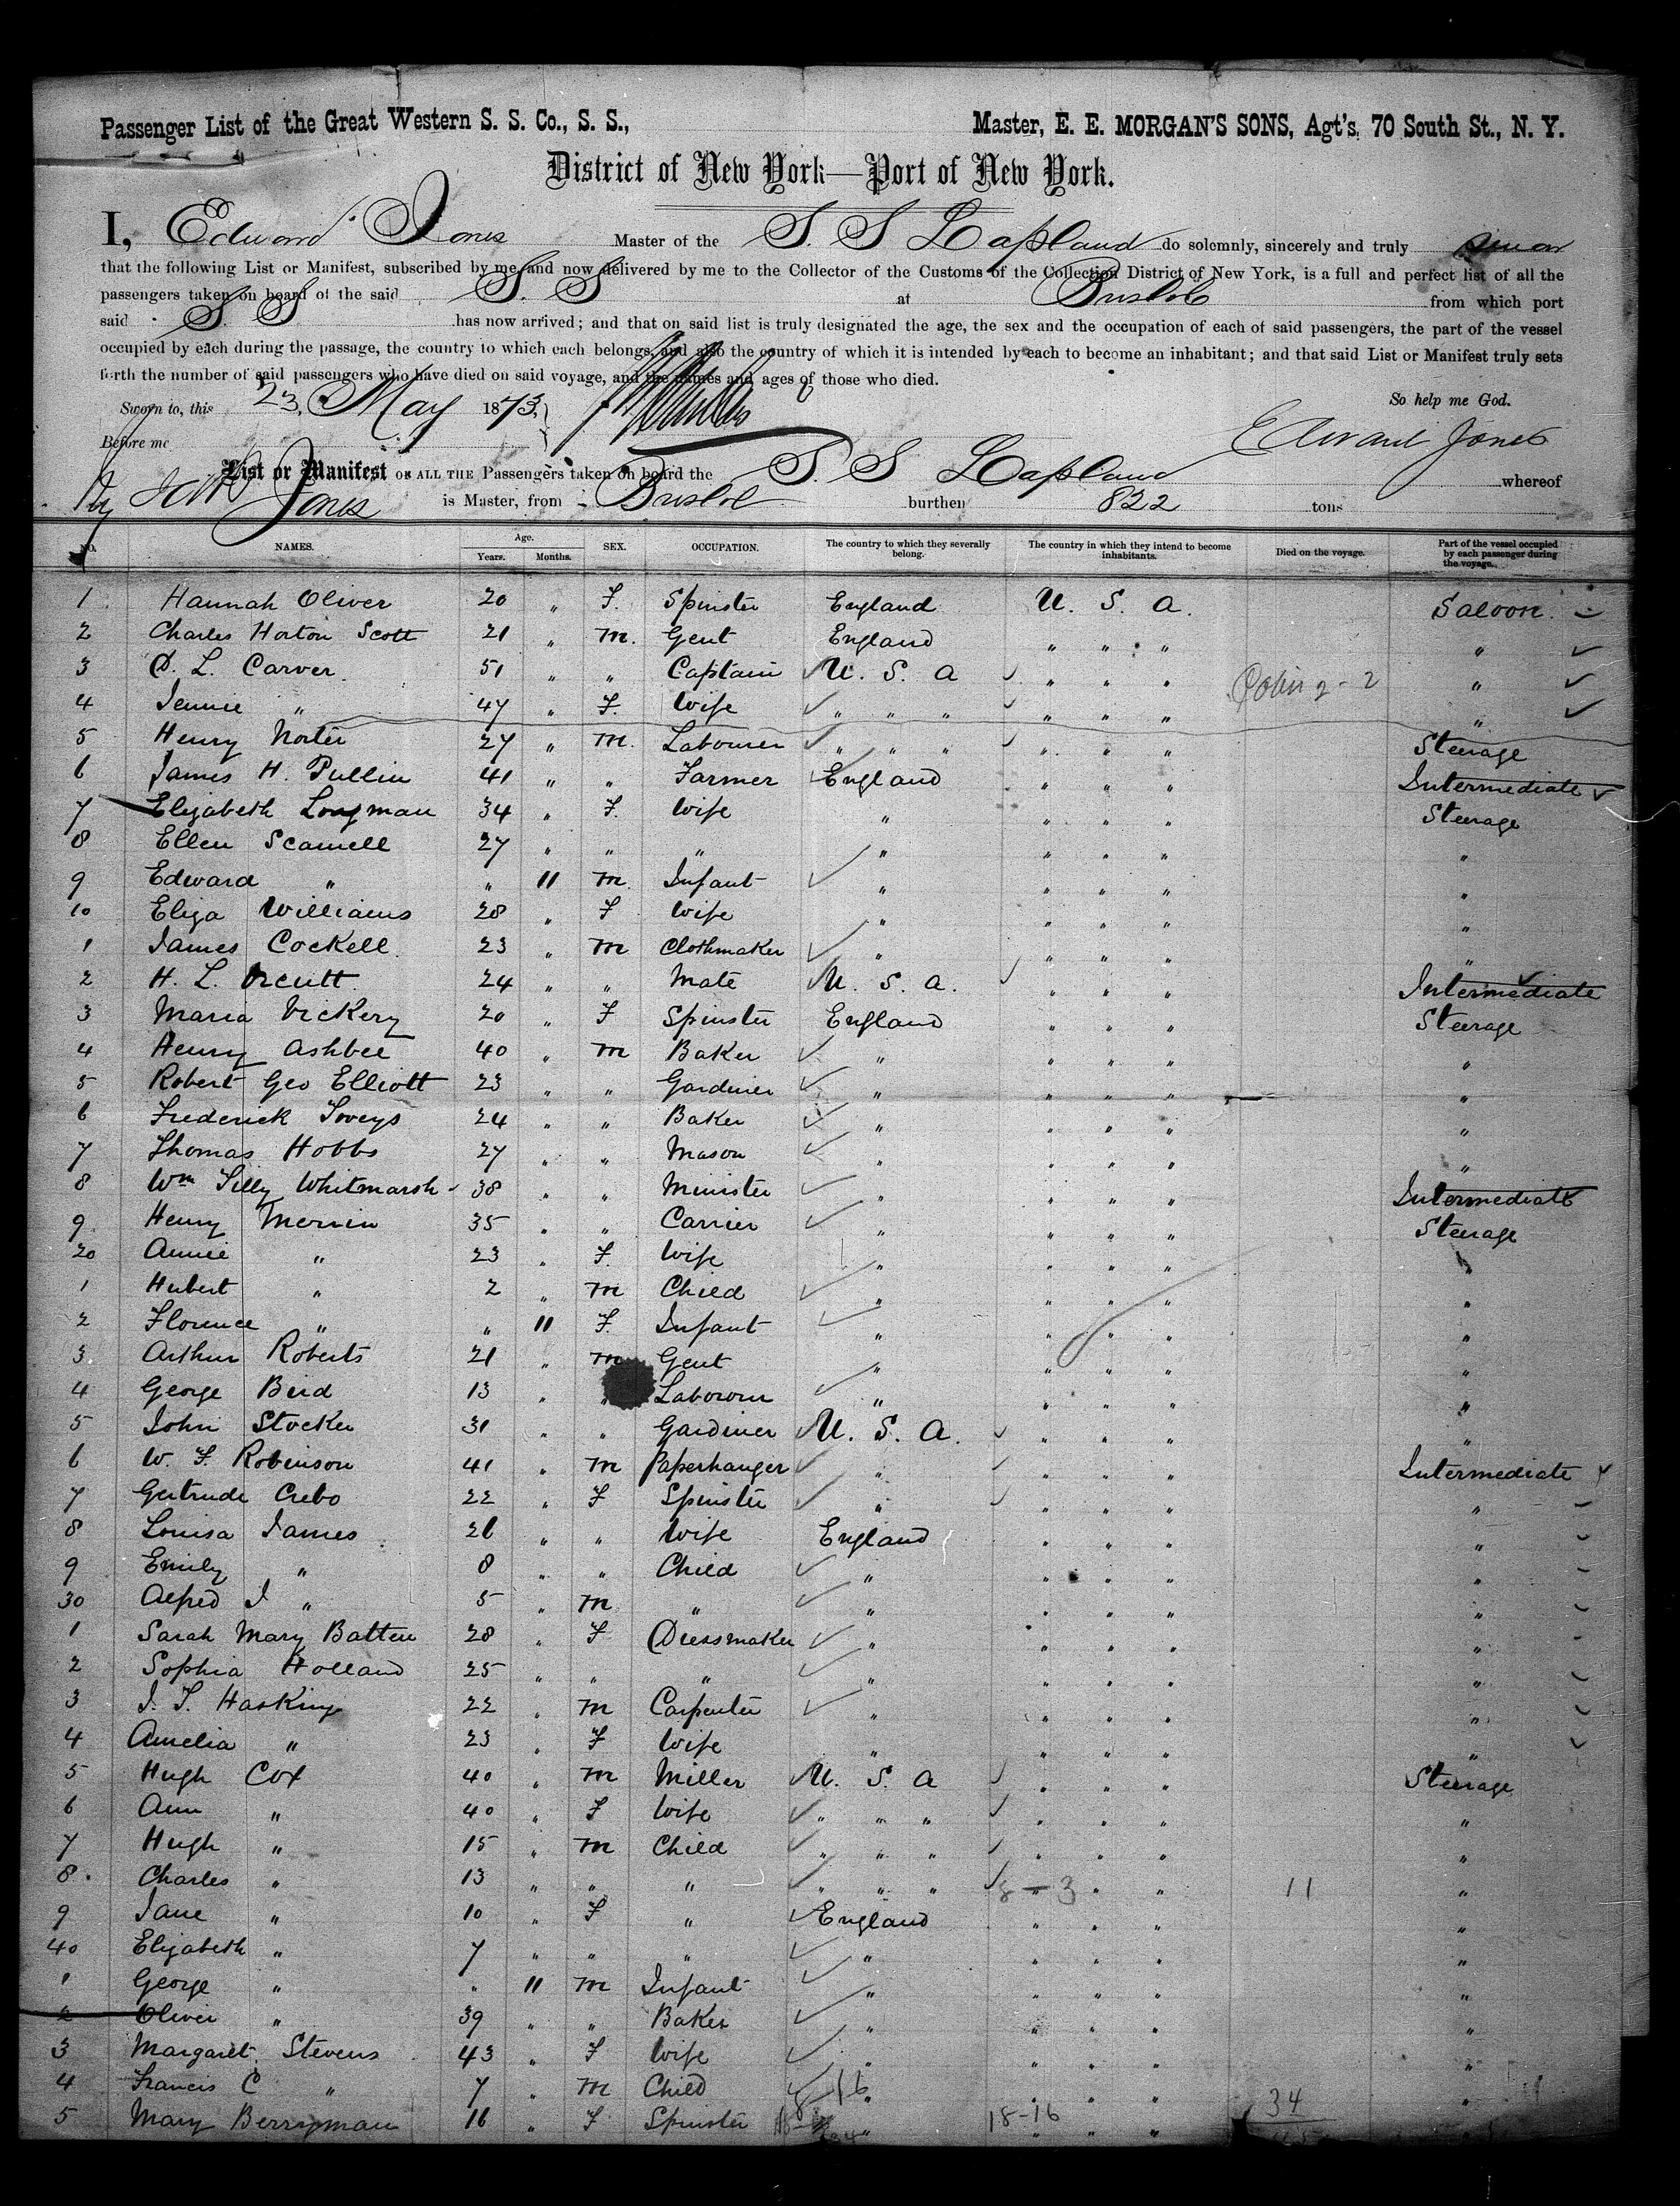 Passenger List of the Great Western S. S. Co., S. S., Master, E. E. MORGAN'S SONS, Agt's. 70 South St., N. Y.
District of New York—Port of New York.
I, Edward Jones Master of the S. S Lapland do solemnly, sincerely and truly swear
that the following List or Manifest, subscribed by me and now delivered by me to the Collector of the Customs of the Collection District of New York, is a full and perfect list of all the
passengers taken on board of the said S. S at Bristol from which port
said S. S has now arrived; and that on said list is truly designated the age, the sex and the occupation of each of said passengers, the part of the vessel
occupied by each during the passage, the country to which each belongs, and also the country of which it is intended by each to become an inhabitant; and that said List or Manifest truly sets
forth the number of said passengers who have died on said voyage, and the names and ages of those who died.
Sworn to, this 23. May 1873, So help me God.
Before me Edward Jones
List or Manifest OF ALL THE Passengers taken on board the S. S Lapland whereof
Jones is Master, from Bristol burthen 822 tons
NO. NAMES. Age. Years. Months. SEX. OCCUPATION. The country to which they severally belong. The country in which they intend to become inhabitants. Died on the voyage. Part of the vessel occupied by each passenger during the voyage.
1 Hannah Oliver 20 " F. Spinster England U. S. A. Saloon.
2 Charles Horton Scott 21 " m. Gent England " " " "
3 D. L. Carver 51 " " Captain U. S. A " " " "
4 Jennie " 47 " F. Wife " " " " " " "
5 Henry Norter 27 " m. Labourer " " " " " " Steerage
6 James H. Pullin 41 " " Farmer England " " " Intermediate
7 Elizabeth Longman 34 " F. Wife " " " " Steerage
8 Ellen Scamell 27 " " " " " " " "
9 Edward " " 11 m. Infant " " " " "
10 Eliza Williams 28 " F Wife " " " " "
1 James Cockell 23 " m Clothmaker " " " " "
2 H. L. Orcutt 24 " " Mate U. S. A. " " " Intermediate
3 Maria Vickery 20 " F Spinster England " " " Steerage
4 Henry Ashbee 40 " m Baker " " " " "
5 Robert Geo Elliott 23 " " Gardiner " " " " "
6 Frederick Toveys 24 " " Baker " " " " "
7 Thomas Hobbs 27 " " Mason " " " " "
8 Wm Tilly Whitmarsh 38 " " Minister " " " " Intermediate
9 Henry Merrin 35 " " Carrier " " " " Steerage
20 Annie " 23 " F. Wife " " " " "
1 Hubert " 2 " m Child " " " " "
2 Florence " " 11 F. Infant " " " " "
3 Arthur Roberts 21 " m Gent " " " " "
4 George Bird 13 " " Labourer " " " " "
5 John Stocker 31 " " Gardiner U. S. A. " " " "
6 W. F. Robinson 41 " m Paperhanger " " " " Intermediate
7 Gertrude Crebo 22 " F Spinster " " " " "
8 Louisa James 26 " " Wife England " " " "
9 Emily " 8 " " Child " " " " "
30 Alfred J " 5 " m " " " " " "
1 Sarah Mary Batten 28 " F Dressmaker " " " " "
2 Sophia Holland 25 " " " " " " " "
3 J. T. Hasking 22 " m Carpenter " " " " "
4 Amelia " 23 " F Wife " " " " "
5 Hugh Cox 40 " m Miller U. S. A " " " Steerage
6 Ann " 40 " F Wife " " " " " " "
7 Hugh " 15 " m Child " " " " " " "
8 Charles " 13 " " " " " " 8-3 " " 11 "
9 Jane " 10 " F " England " " " "
40 Elizabeth " 7 " " " " " " " "
1 George " " 11 m Infant " " " " "
2 Oliver " 39 " " Baker " " " " "
3 Margaret Stevens 43 " F Wife " " " " "
4 Francis C " 7 " m Child " " " " "
5 Mary Berryman 16 " F Spinster " 18-16 " " 34 "